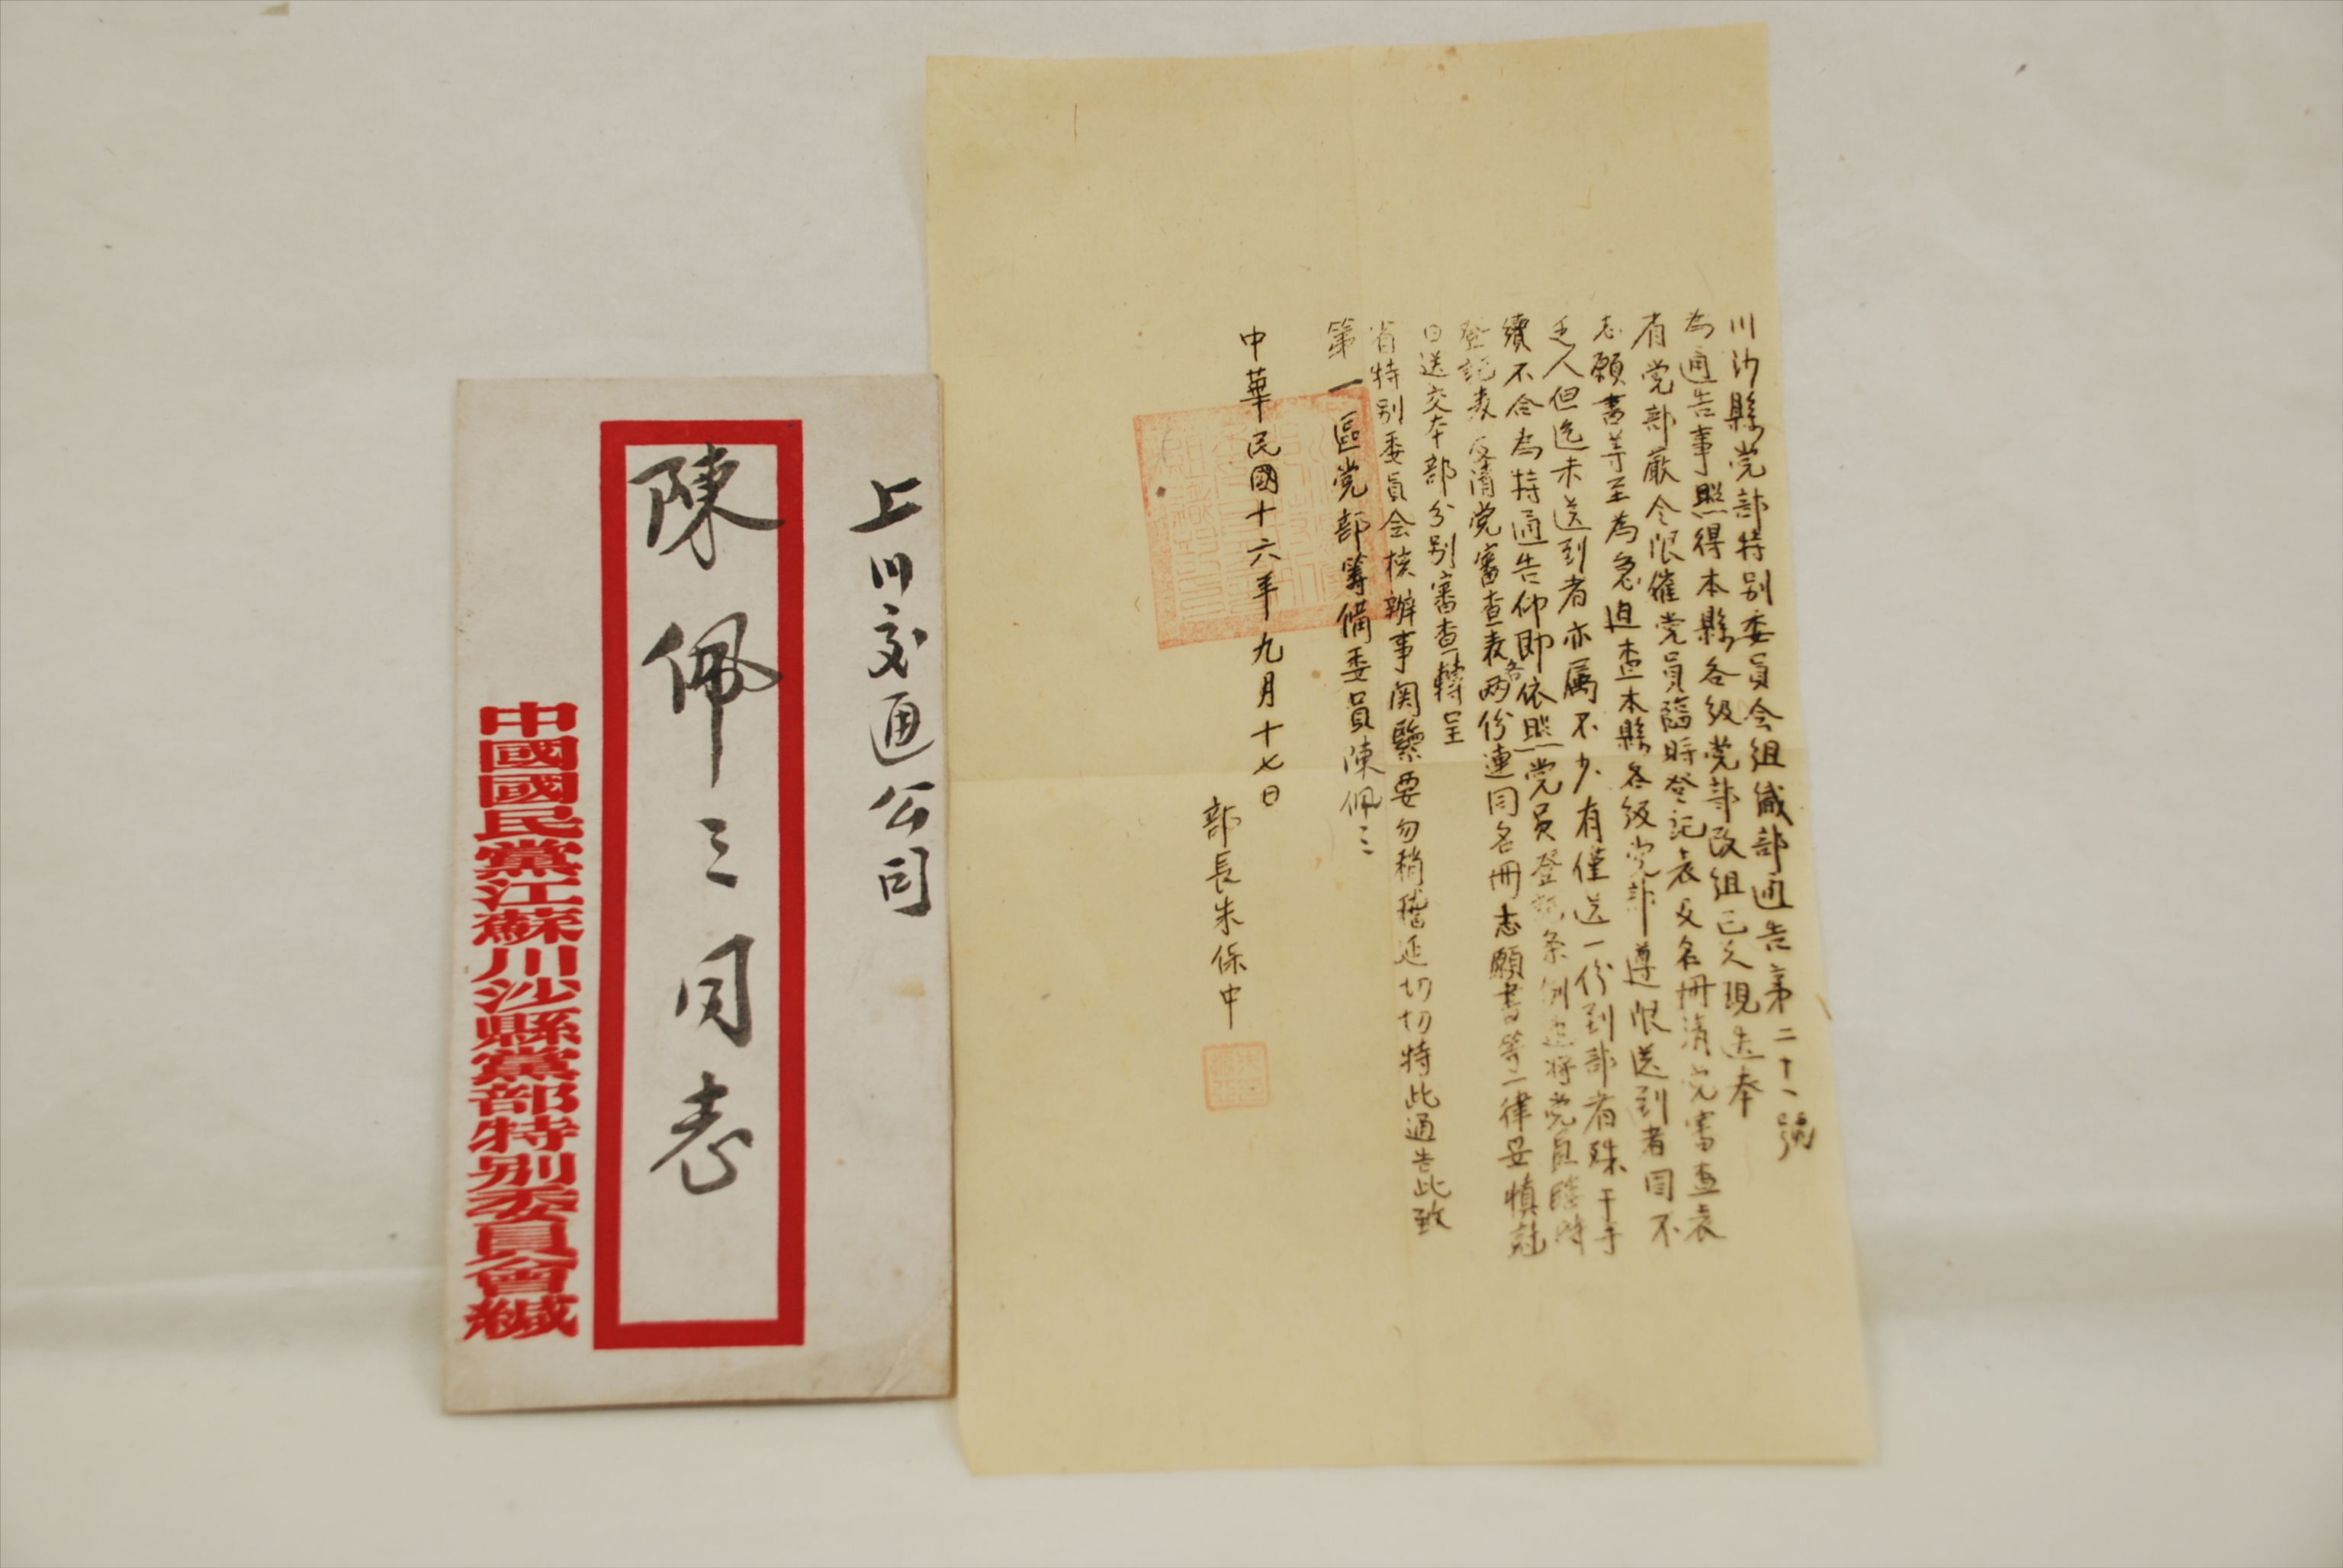 上川交通公司
陳佩三同志
中國國民黨江蘇川沙縣黨部特別委員會緘
川沙縣党部特别委員会組織部通告第二十八號
為通告事照得本縣各级党部改組已久現迭奉
省党部嚴令限催党員臨時登記表及名冊清党審查表
志願書等至為急迫查本縣各级党部遵限送到者固不
乏人但迄未送到者亦属不少有僅送一份到部者殊于手
續不合為特通告仰即依照党员登記条例迅将党員臨時
登記表及清党審查表各两份連同名冊志願書等一律妥慎
日送交本部分别審查轉呈
省特别委員会核辦事関緊要勿稍稽延切切特此通告此致
第一區党部籌備委員陳佩三
中華民國十六年九月十七日
部長朱保中